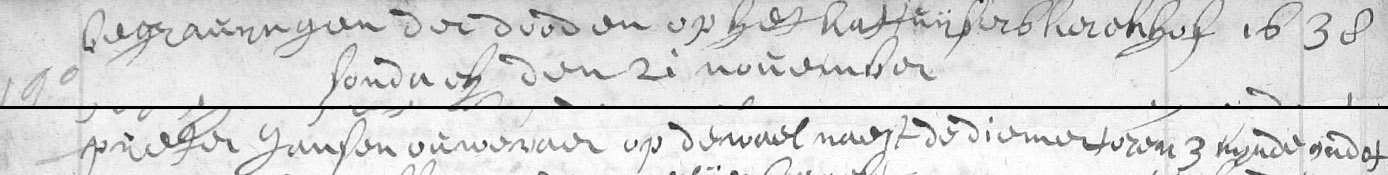 begravingen der dooden op het kattuijsers kerckhof 1638
sondach den 21 november
pijeter Jansen ouwevaer op de wael naest de diemer toren 3 kijnder